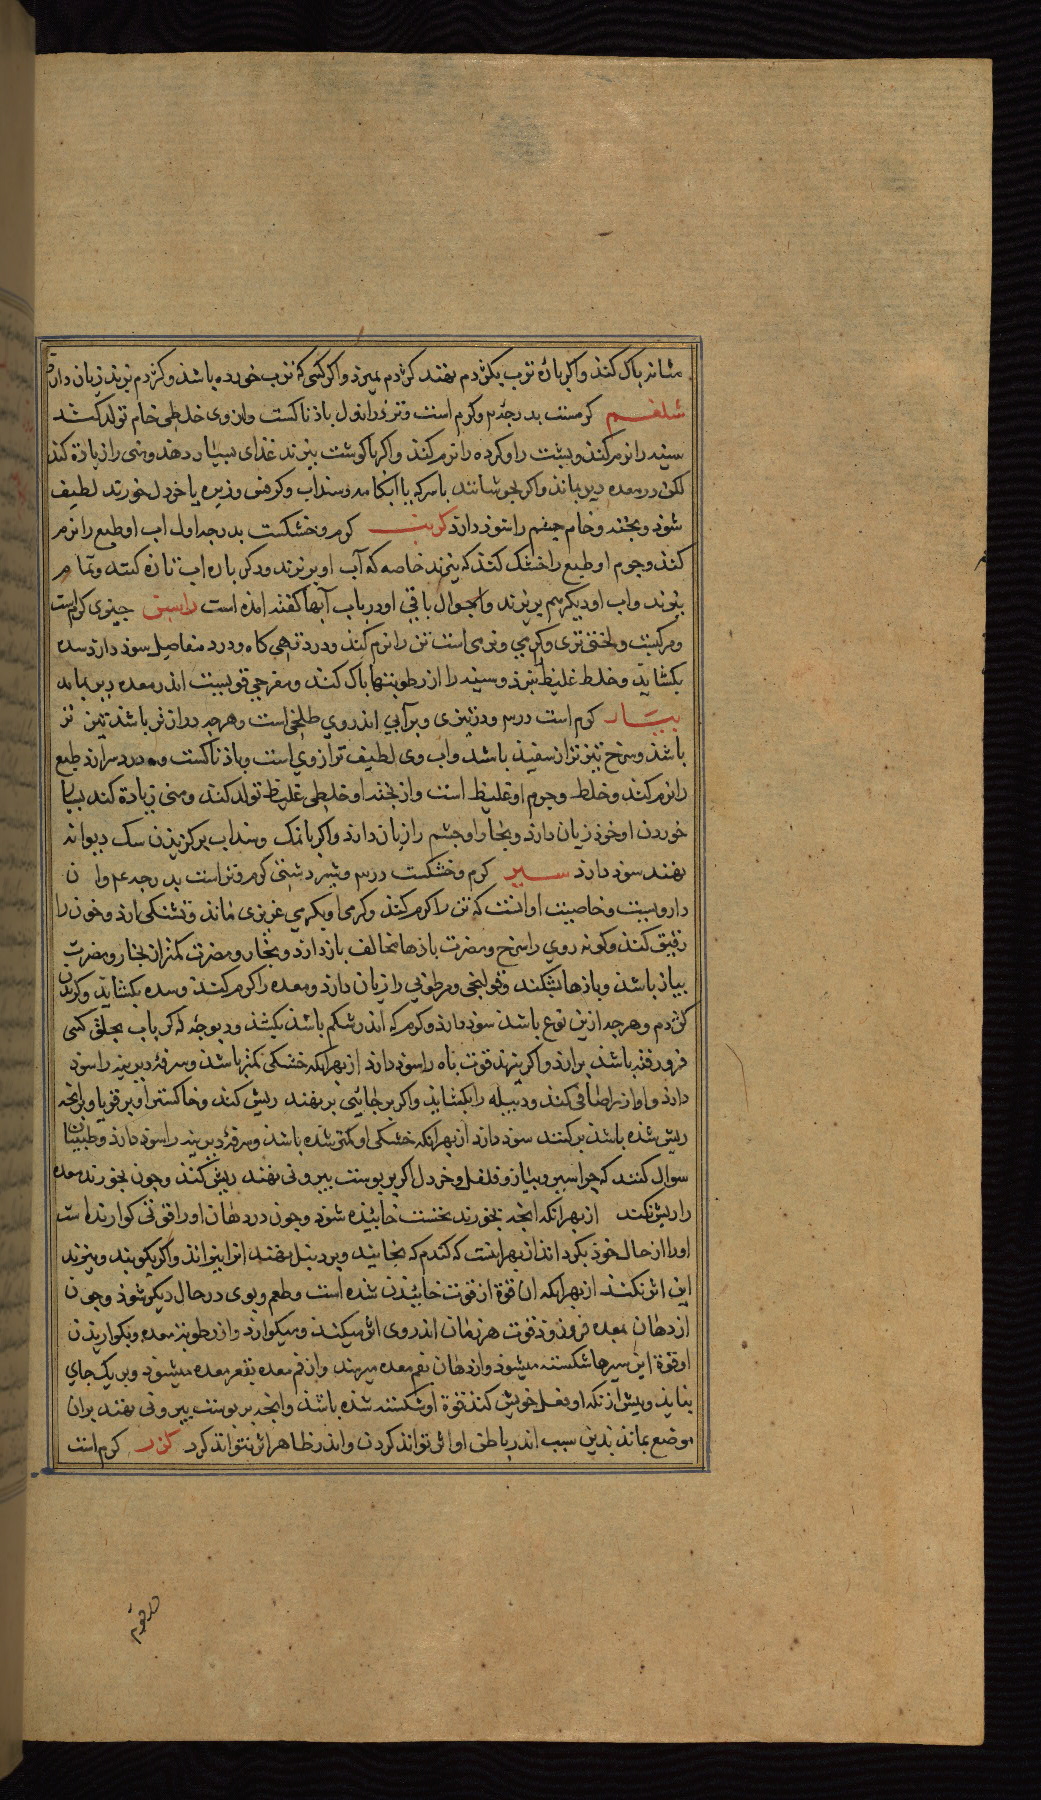 مثانه پاک کند واکر پارهٔ ترب بکژدم نهند کژدم بمیرد واکر کسی که ترب خورده باشد وکژدم بزند زیان ندارد
شلغم کرمست بدرجهٔ وکرم است وتر دراول باذناکست وازوی خلطی خام تولد کند
سینه را نرم کند وپشت را وکرده را نرم کند واکر باکوشت بپزند غذای بسیار دهد ومنی را زیاذه کند
لکن در معده دیر بماند واکر بجوشانند باسرکه یا ابکامه وسنداب وکرفس وزیره یا خردل خورند لطیف
شوذ وپخته وخام چشم را سوذ دارذ کرنب کرم وخشکست بدرجه اول اب او طبع را نرم
کند وجرم او طبع را خشک کند که بپزند خاصه که آب او بریزند ودکر باره اب تازه کنند وتمام
بپزند واب اودیکر هم بریزند واحوال باقی او در باب آبها کفته امذه است راسن چیزی کرم است
ومرکبست ولختی تری وکرمی ونرمی است تن را نرم کند ودرد تهی کاه ودرد مفاصل سوذ دارد سده
بکشاید وخلط غلیظ ببرذ وسینه را از رطوبتها پاک کند ومفرحی قویست اندر معده دیر بماند
پیاز کرم است درس ودرتیزی وبرآبی اندر وی طلخی است وهرچه درازتر باشد تیزتر
باشذ وسرخ تیزتر از سفیذ باشد واب وی لطیف تر از وی است وباذناکست ودرد سر ارد طبع
را نرم کند وخلط وجرم او غلیظ است واز پخته او خلطی غلیظ تولد کند ومنی زیاده کند بسیار
خوردن او خرذ زیان دارد وبخار او چشم را زیان دارد واکر بانمک وسنداب برکزیدن سک دیوانه
نهند سوذ دارذ سیر کرم وخشکست درس وسیر دشتی کرم وتر است بدرجه ع وان
داروییست وخاصیت او انست که تن را کرم کند وکرمی او بکرمی غریزی ماند وتشنکی ارذ وخون را
رقیق کند وکونه روی را سرخ ومضرت باذها مخالف باز دارد وبخار ومضرت کمتر از بخار ومضرت
پیاز باشذ وباذها بشکند وقولنجی ومرطوبی را زیان دارد ومعده را کرم کند وسده بکشاید وکزیدن
کژدم وهرچه ازین نوع باشد سوذ دارذ وکرم که اندر شکم باشذ بکشذ ودیوچه که در اب بحلق کسی
فرو رفته باشد برارد واکر بپزند قوت باه را سوذ دارد از بهر انکه خشکی کمتر باشد وسرفهٔ دیرینه را سوذ
دارذ واواز را صافی کند ودبیله را بکشاید واکر بر جائی برنهند ریش کند وخاکستر او بر قوبا وبرانچه
ریش شذه باشذ برکنند سوذ دارذ از بهر انکه خشکی او کمتر شذه باشد وسرفهٔ دیرینه را سوذ دارد وطبیبان
سوال کنند که چرا سیر وپیاز وفلفل وخردل اکر بر پوست بیرونی نهند ریش کند وچون بخورند معده
را ریش نکند از بهر انکه انچه بخورند نخست خائیذه شوذ وچون در دهان او را قوتی کوارنده است
اورا از حال خوذ بکرداند از بهر انست که کندم که بخایند وبر دنبل نهند انرا بپزاند واکر بکوبند وبپزند
این اثر نکند از بهر انکه ان قوة از قوت خائیدن شده است وطعم وبوی در حال دیکر شوذ وچون
از دهان بمعده فروذ وذ قوت هر زمان اندر وی اثر میکند ومیکوارد واز رطوبت معده وبکواریدن
او قوة این سیرها شکسته میشوذ واز دهان بفم معده میرسد واز فم معده بقعر معده میشوذ وبر یک جای
نماید وپیش از انکه او فعل خویش کند قوة او شکسته شذه باشذ وانچه بر پوست بیرونی نهند بران
موضع بماند بدین سبب اندر باطن او اثر نتواند کردن واندر ظاهر اثر بتواند کرد کزر کرم است